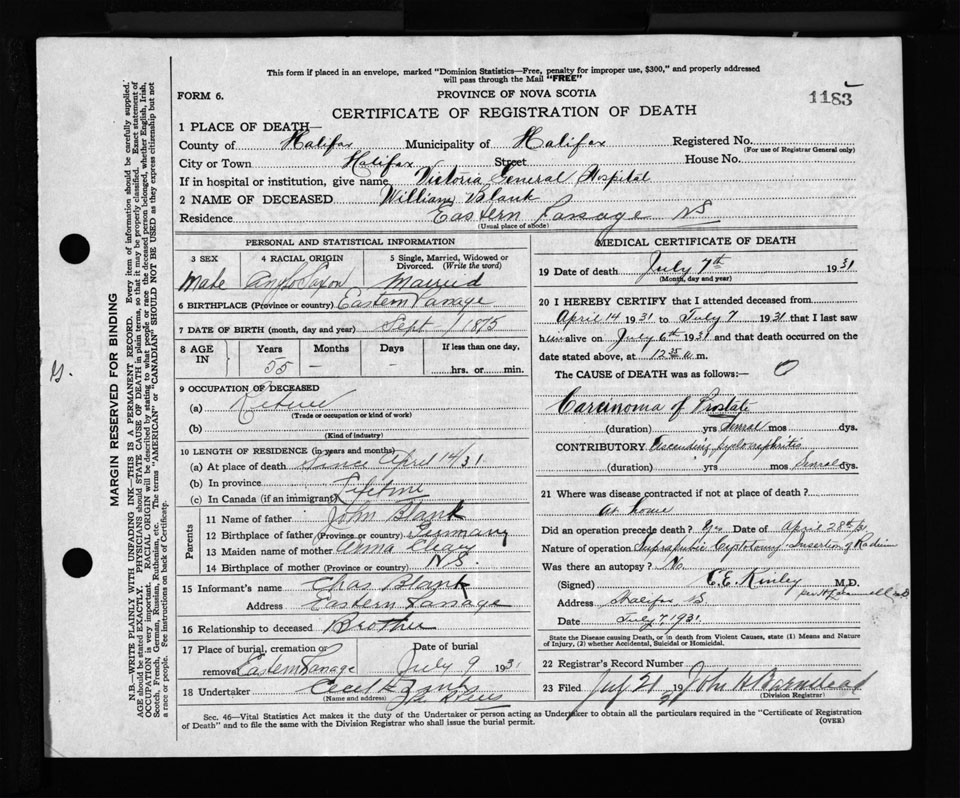 This form if placed in an envelope, marked "Dominion Statistics—Free, penalty for improper use, $300," and properly addressed
will pass through the Mail "FREE"
FORM 6.
PROVINCE OF NOVA SCOTIA
1183
CERTIFICATE OF REGISTRATION OF DEATH
1 PLACE OF DEATH—
County of Halifax Municipality of Halifax Registered No.
(For use of Registrar General only)
City or Town Halifax Street House No.
If in hospital or institution, give name Victoria General Hospital
2 NAME OF DECEASED William Blank
Residence Eastern Passage NS
(Usual place of abode)
PERSONAL AND STATISTICAL INFORMATION
3 SEX 4 RACIAL ORIGIN 5 Single, Married, Widowed or
Divorced. (Write the word)
Male Anglo Saxon Married
6 BIRTHPLACE (Province or country) Eastern Passage
7 DATE OF BIRTH (month, day and year) Sept 1875
8 AGE IN Years Months Days If less than one day,
55 — hrs. or min.
9 OCCUPATION OF DECEASED
(a) Retired
(Trade or occupation or kind of work)
(b)
(Kind of industry)
10 LENGTH OF RESIDENCE (in years and months)
(a) At place of death Since April 14/31
(b) In province
(c) In Canada (if an immigrant) Lifetime
Parents
11 Name of father John Blank
12 Birthplace of father (Province or country) Germany
13 Maiden name of mother Anna
14 Birthplace of mother (Province or country) N.S.
15 Informant's name Chas Blank
Address Eastern Passage
16 Relationship to deceased Brother
17 Place of burial, cremation or Date of burial
removal Eastern Passage July 9 1931
18 Undertaker Cecil E
(Name and address)
MEDICAL CERTIFICATE OF DEATH
19 Date of death July 7th 1931
(Month, day and year)
20 I HEREBY CERTIFY that I attended deceased from
April 14 1931 to July 7 1931 that I last saw
him alive on July 6th 1931 and that death occurred on the
date stated above, at 12 a.m.
The CAUSE of DEATH was as follows:—
Carcinoma of Prostate
(duration) yrs mos dys.
CONTRIBUTORY Ascending pyelonephritis
(duration) yrs mos dys.
21 Where was disease contracted if not at place of death?
At home
Did an operation precede death? Yes Date of April 28th/31
Nature of operation Suprapubic Cystotomy Insertion of Radium
Was there an autopsy? No
(Signed) C.E. Kinley M.D.
Address Halifax NS
Date July 7 1931
State the Disease causing Death, or in death from Violent Causes, state (1) Means and Nature
of Injury, (2) whether Accidental, Suicidal or Homicidal.
22 Registrar's Record Number
23 Filed July 21 1931 John H Barnstead
(Division Registrar)
Sec. 46—Vital Statistics Act makes it the duty of the Undertaker or person acting as Undertaker to obtain all the particulars required in the "Certificate of Registration
of Death" and to file the same with the Division Registrar who shall issue the burial permit.
(OVER)
MARGIN RESERVED FOR BINDING
N.B.—WRITE PLAINLY WITH UNFADING INK—THIS IS A PERMANENT RECORD. Every item of information should be carefully supplied.
AGE should be stated EXACTLY. PHYSICIANS should STATE CAUSE OF DEATH in plain terms, so that it may be properly classified. Exact statement of
OCCUPATION is very important. RACIAL ORIGIN will be described by stating to what people or race the deceased person belonged, whether English, Irish,
Scotch, French, German, Russian, Ruthenian, etc. The terms "AMERICAN" or "CANADIAN" SHOULD NOT BE USED as they express citizenship but not
a race or people. See instructions on back of Certificate.